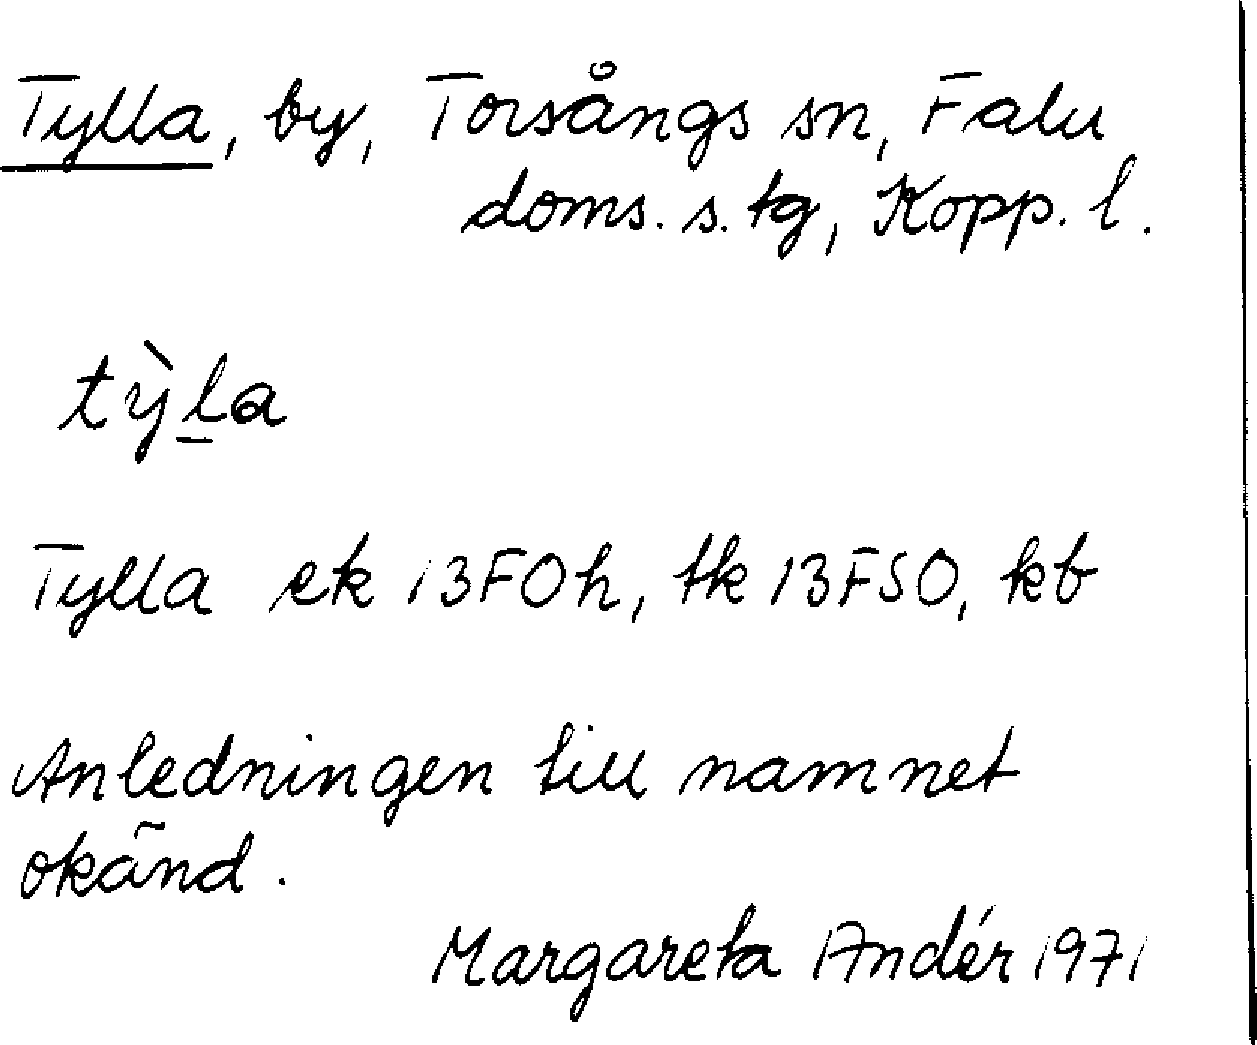 Tylla, by, Torsångs sn, Falu
doms. s. tg, Kopp. l.
tỳl̲a
Tylla ek 13F0h, tk 13FSO, kb
Anledningen till namnet
okänd.
Margareta Andér 1971